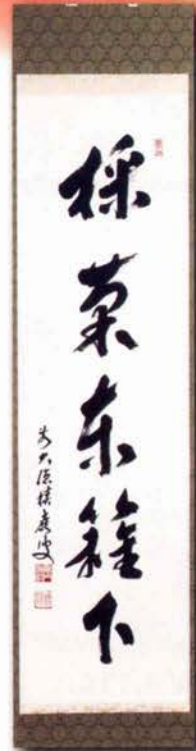 採菊東籬下
前大徳積應叟